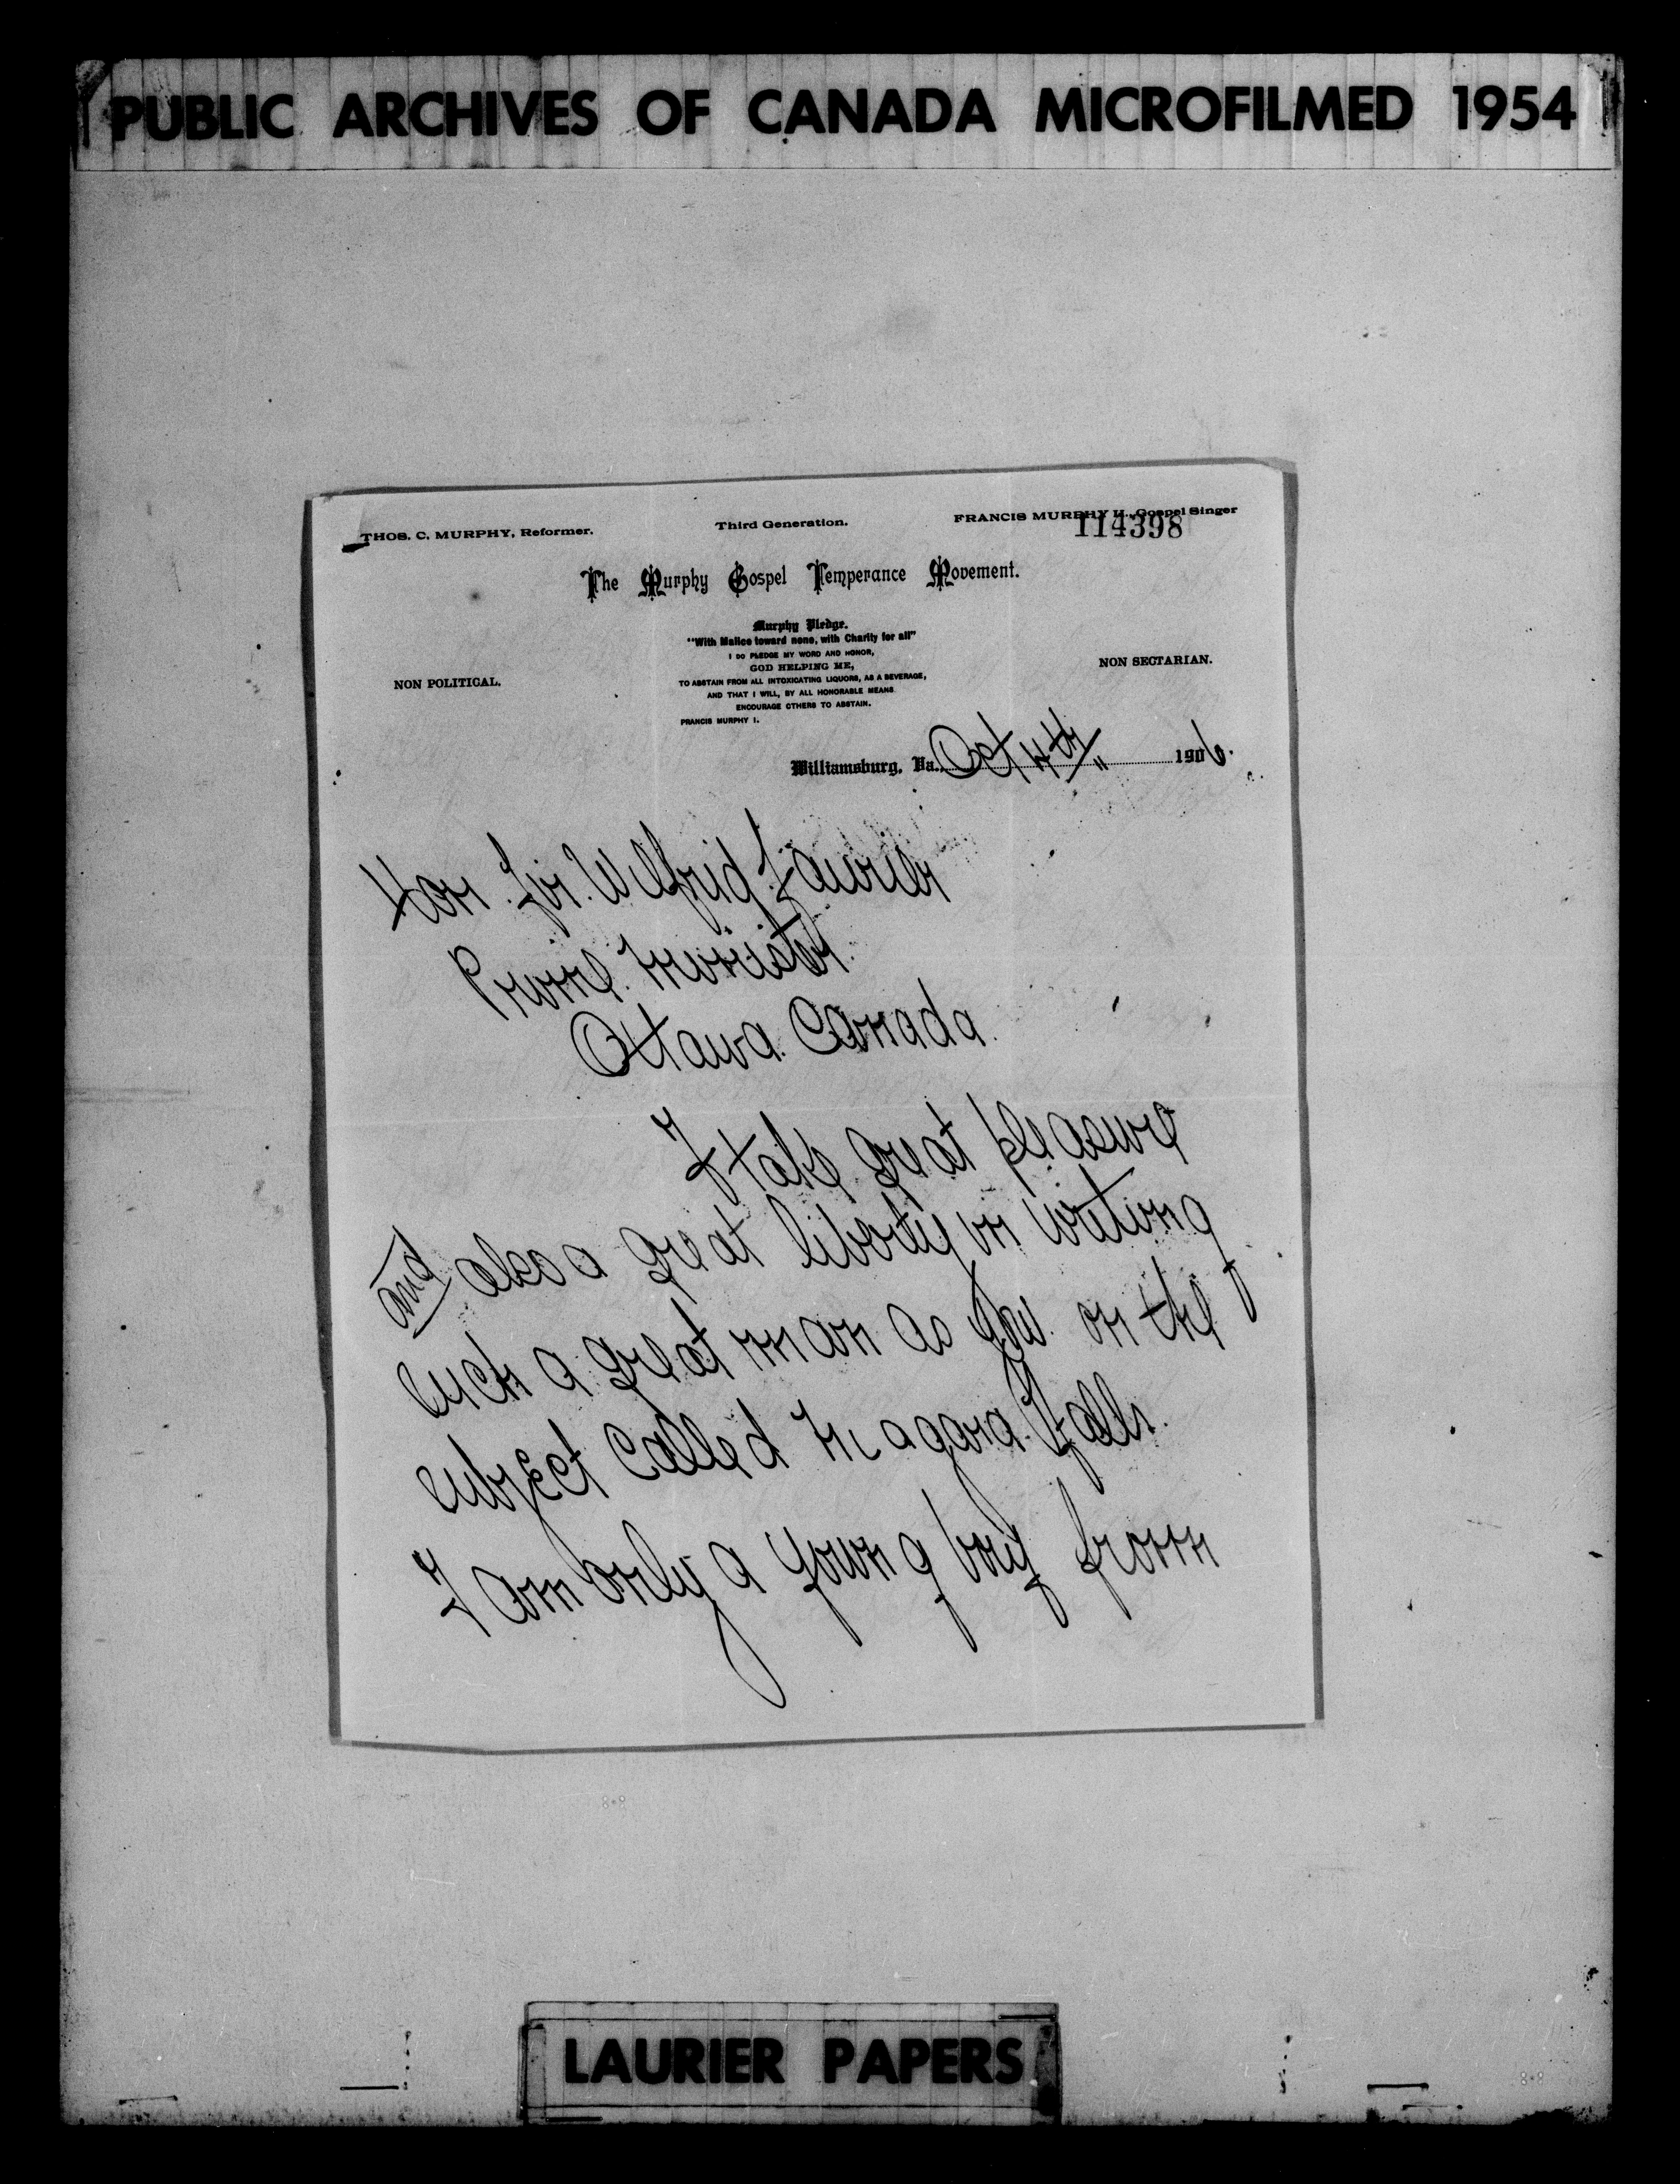 PUBLIC ARCHIVES OF CANADA MICROFILMED 1954
THOS. C. MURPHY, Reformer. Third Generation. FRANCIS MURPHY II., Gospel Singer
114398
The Murphy Gospel Temperance Movement.
Murphy Pledge.
"With Malice toward none, with Charity for all"
I DO PLEDGE MY WORD AND HONOR,
GOD HELPING ME,
TO ABSTAIN FROM ALL INTOXICATING LIQUORS, AS A BEVERAGE,
AND THAT I WILL, BY ALL HONORABLE MEANS
ENCOURAGE OTHERS TO ABSTAIN.
FRANCIS MURPHY I.
NON POLITICAL. NON SECTARIAN.
Williamsburg, Va. Oct 4th 1906.
Hon. Sir. Wilfrid Laurier
Prime. Minister.
Ottawa. Canada.
I take great pleasure
and also a great liberty in writing
such a great man as you. on the
subject called Niagara. Falls.
I am only a young boy from
LAURIER PAPERS